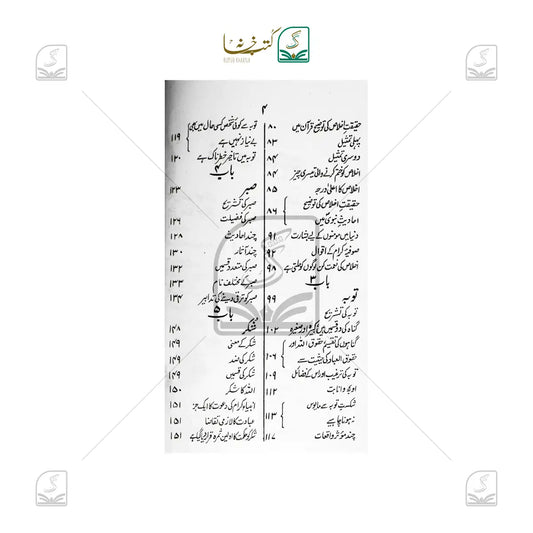 کتب خانہ
۴
حقیقت اخلاص کی توضیح قرآن میں ۸۰
پہلی تمثیل ۸۳
دوسری تمثیل ۸۴
اخلاص کو ختم کرنے والی تیسری چیز ۸۴
اخلاص کا اعلیٰ درجہ ۸۵
حقیقت اخلاص کی توضیح
احادیث نبوی میں ۸۶
دنیا میں مومنوں کے لیے بشارت ۹۱
صوفیۂ کرام کے اقوال ۹۲
اخلاص کی نعمت کن لوگوں کو ملتی ہے ۹۸
باب ۳
توبہ ۹۹
توبہ کی تشریح
گناہ کی دو قسمیں ہیں کبیرہ اور صغیرہ ۱۰۲
گناہوں کی تقسیم حقوق اللہ اور
حقوق العباد کی حیثیت سے ۱۰۶
توبہ کی ترغیب اور اس کے فضائل ۱۰۹
اوبہ و انابت ۱۱۲
شکست توبہ سے مایوس
نہ ہونا چاہیے ۱۱۳
چند مؤثر واقعات ۱۱۷
توبہ سے کوئی شخص کسی حال میں بھی
بے نیاز نہیں ہے ۱۱۹
توبہ میں تاخیر خطرناک ہے ۱۲۰
باب ۴
صبر ۱۲۳
صبر کی تشریح
صبر کی فضیلت ۱۲۶
چند احادیث ۱۲۸
چند آثار ۱۳۰
صبر کی متعدد قسمیں ۱۳۲
صبر کے مختلف نام ۱۳۳
صبر کو ترقی دینے کی تدابیر ۱۳۴
باب ۵
شکر ۱۴۸
شکر کے معنی ۱۴۹
شکر کی ضد ۱۴۹
شکر کی قسمیں ۱۴۹
اللہ کا شکر ۱۵۰
انبیاء کرام کی دعوت کا ایک جز ۱۵۱
عبادت کا لازمی تقاضا ۱۵۱
شکر کو حکمت کا اولین ثمرہ قرار دیا گیا ہے ۱۵۱